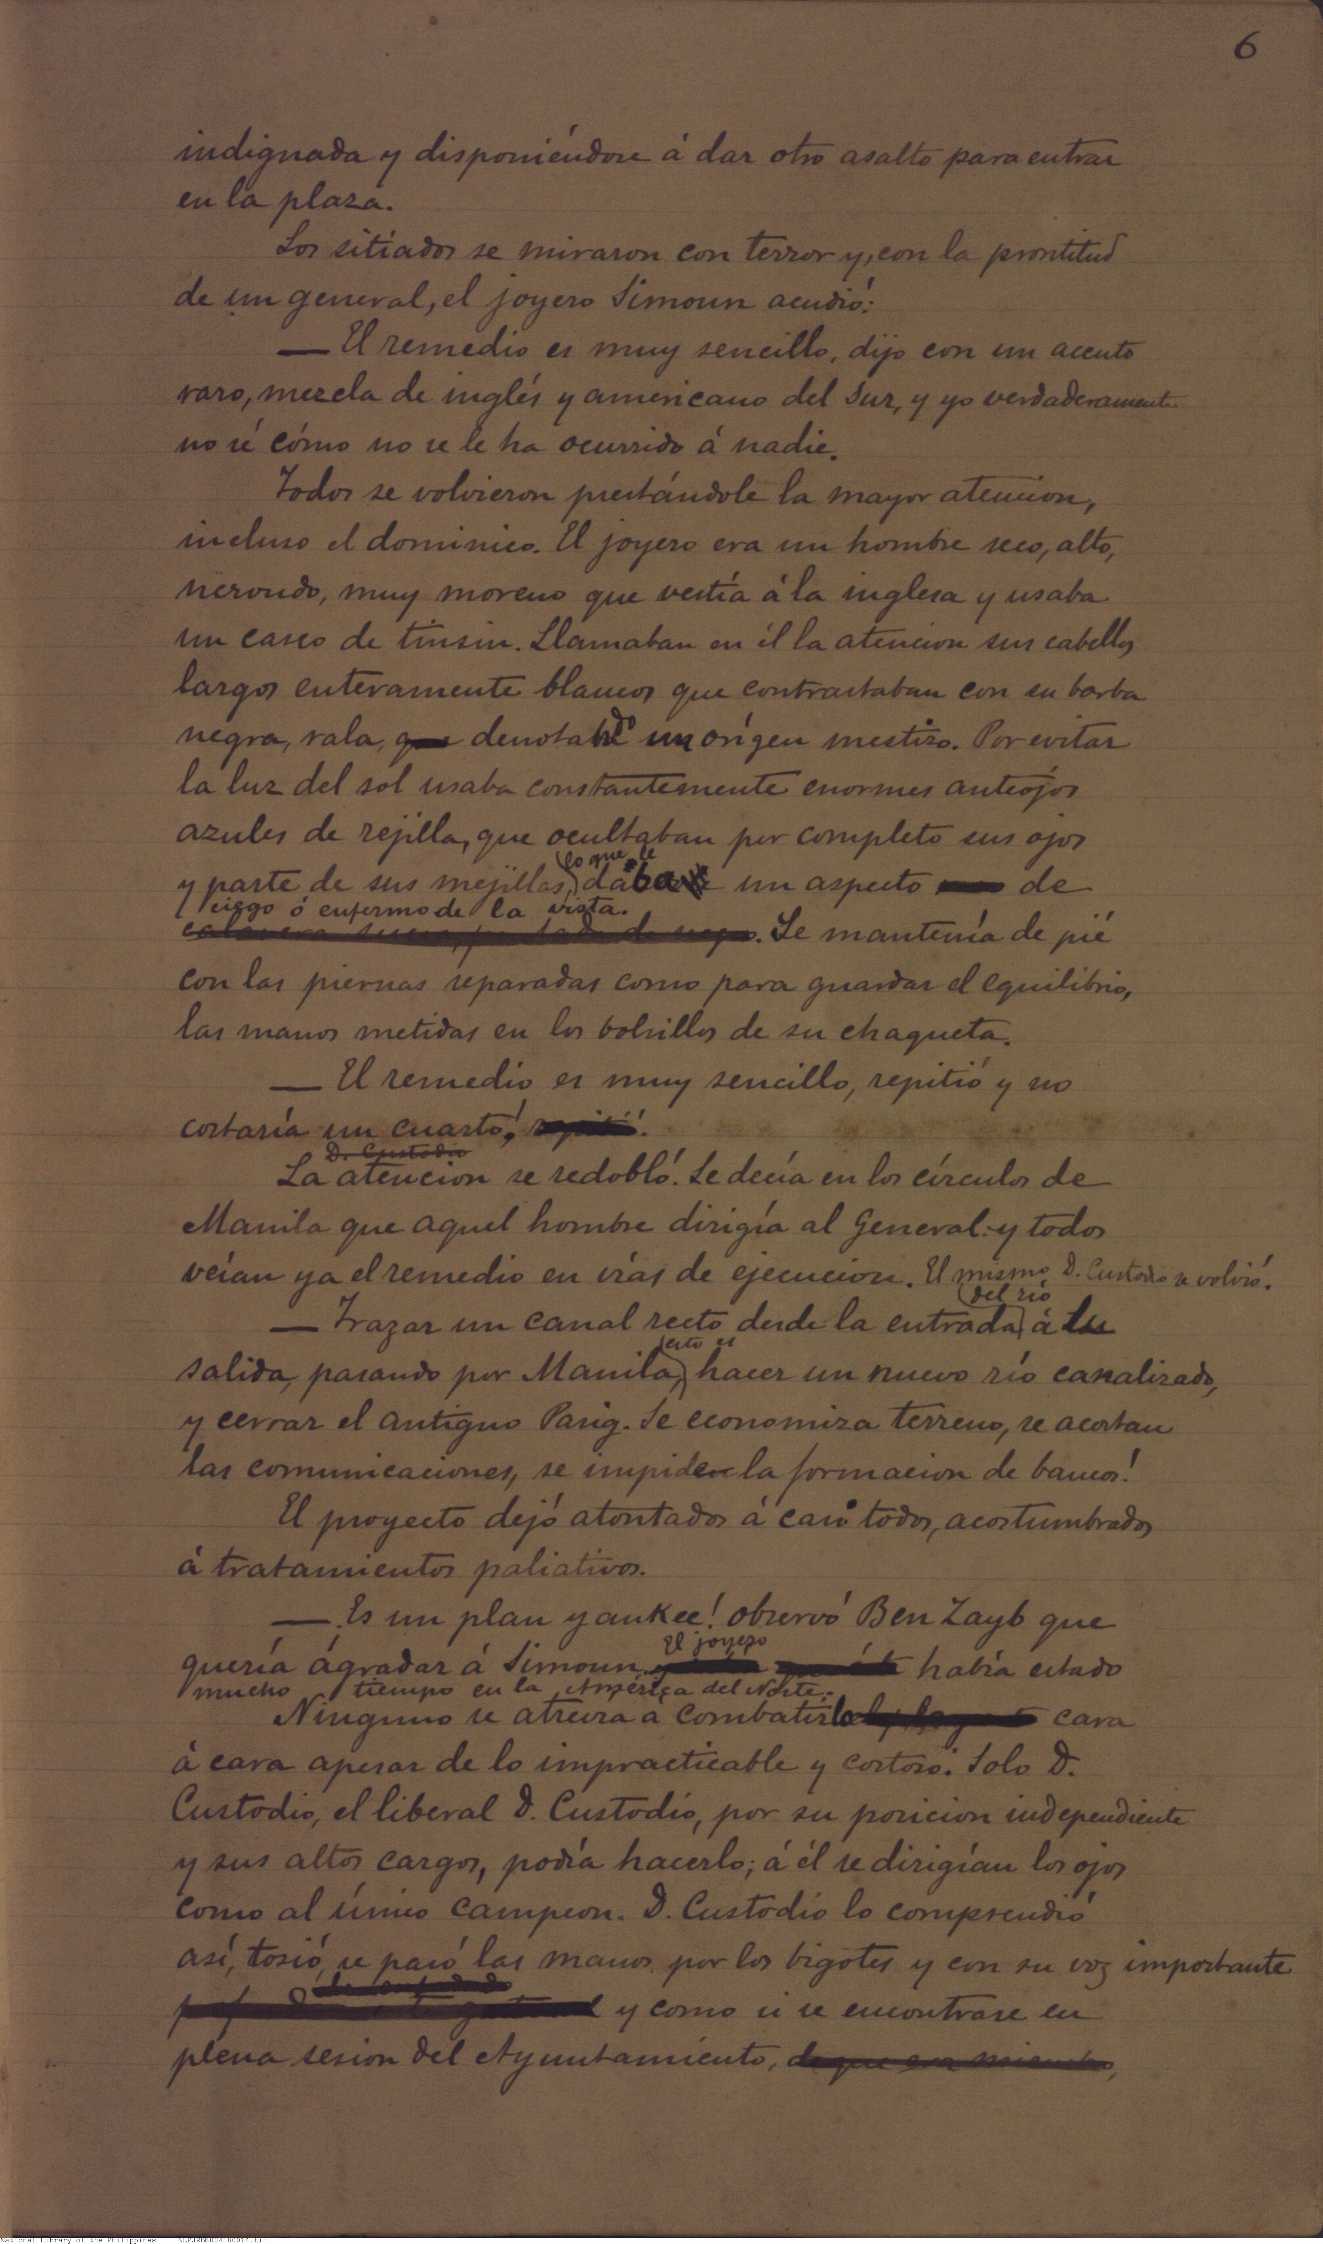 6
indignada y disponiéndose á dar otro asalto para entrar
en la plaza.
Los sitiados se miraron con terror y, con la prontitud
de un general, el joyero Simoun acudió:
— El remedio es muy sencillo, dijo con un acento
raro, mezcla de inglés y americano del Sur, y yo verdaderamente
no sé cómo no se le ha ocurrido á nadie.
Todos se volvieron prestándole la mayor atencion,
incluso el dominico. El joyero era un hombre seco, alto,
nervudo, muy moreno que vestía á la inglesa y usaba
un casco de tinsin. Llamaban en él la atencion sus cabellos
largos enteramente blancos que contrastaban con su barba
negra, rala, que denotando un orígen mestizo. Por evitar
la luz del sol usaba constantemente enormes anteojos
azules de rejilla, que ocultaban por completo sus ojos
lo que le
y parte de sus mejillas, daba un aspecto de
ciego ó enfermo de la vista.
calavera . Se mantenía de pié
con las piernas separadas como para guardar el equilibrio,
las manos metidas en los bolsillos de su chaqueta.
— El remedio es muy sencillo, repitió y no
costaría un cuarto! repitió.
D. Custodio
La atencion se redobló. Se decía en los círculos de
Manila que aquel hombre dirigía al General y todos
veían ya el remedio en vías de ejecucion. El mismo D. Custodio se volvió.
del río
— Trazar un canal recto desde la entrada á su
esto es
salida, pasando por Manila, hacer un nuevo río canalizado,
y cerrar el antiguo Pasig. Se economiza terreno, se acortan
las comunicaciones, se impide la formacion de bancos!
El proyecto dejó atontados á casi todos, acostumbrados
á tratamientos paliativos.
— Es un plan yankee! observó Ben Zayb que
El joyero
quería ágradar á Simoun. había estado
mucho tiempo en la América del Norte.
Ninguno se atrevia a combatirlo cara
á cara apesar de lo impracticable y costoso. Solo D.
Custodio, el liberal D. Custodio, por su posicion independiente
y sus altos cargos, podía hacerlo; á él se dirigían los ojos
como al único campeon. D. Custodio lo comprendió
así, tosió, se pasó las manos por los bigotes y con su voz importante
y como si se encontrase en
plena sesion del Ayuntamiento, de que era miembro,